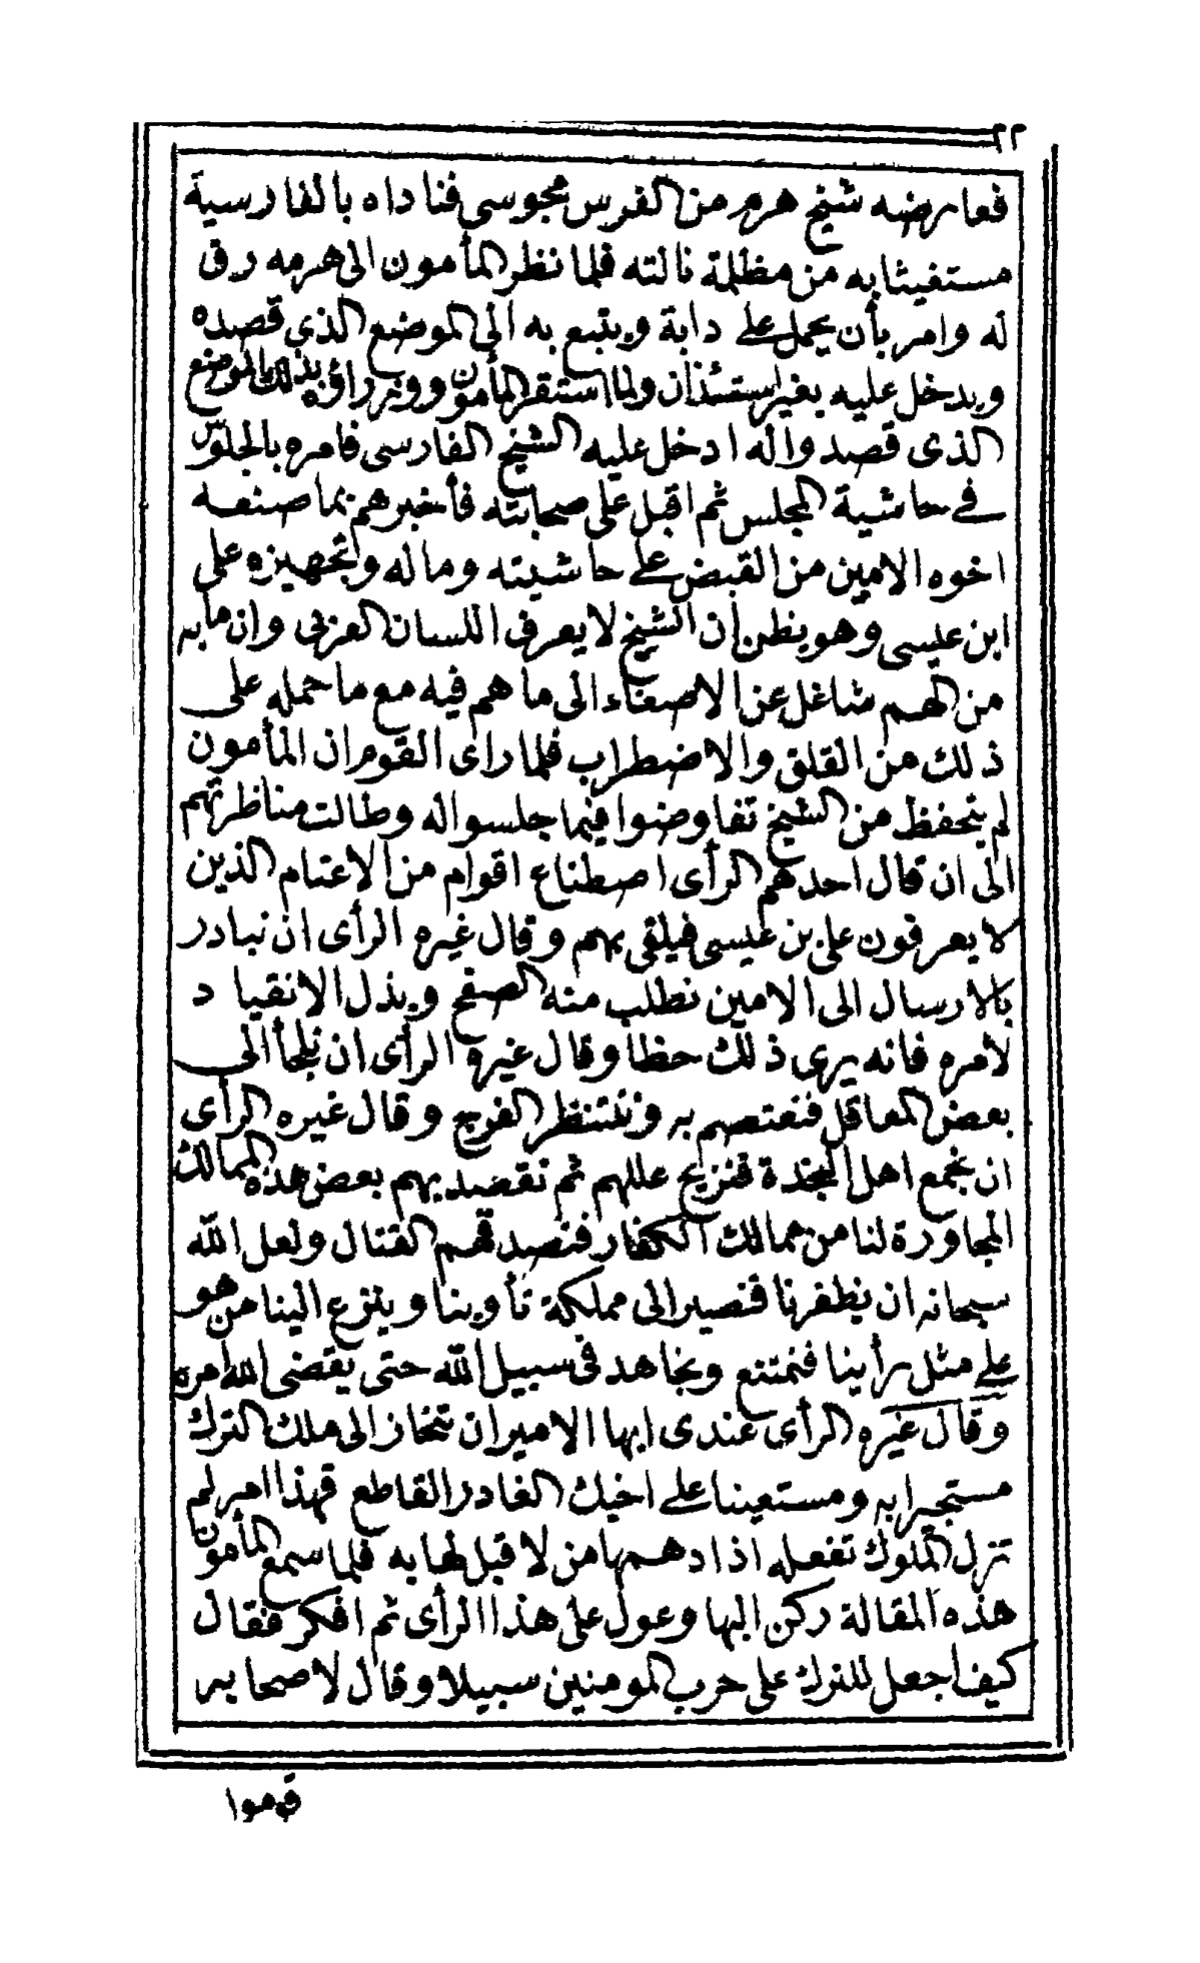 ٢٢
فعارضه شيخ هرم من الفرس مجوسى فناداه بالفارسية
مستغيثا به من مظلمة نالته فلما نظر المأمون الى هرمه رق
له وامر بأن يحمل على دابة ويتبع به الى الموضع الذى قصده
ويدخل عليه بغير استئذان ولما استقر المأمون ووزراؤه بذلك الموضع
الذى قصدواله ادخل عليه الشيخ الفارسى فامره بالجلوس
فى حاشية المجلس ثم اقبل على صحابته فأخبرهم بما صنعه
اخوه الامين من القبض على حاشيته وماله وتجهيزه على
ابن عيسى وهو يظن ان الشيخ لا يعرف اللسان العربى وان ما به
من الهم شاغل عن الاصغاء الى ما هم فيه مع ما حمله على
ذلك من القلق والاضطراب فلما راى القوم ان المأمون
لم يتحفظ من الشيخ تفاوضوا فيما جلسواله وطالت مناظرتهم
الى ان قال احدهم الرأى اصطناع اقوام من الاغتام الذين
لا يعرفون على بن عيسى فيلقى بهم وقال غيره الرأى ان نبادر
بالارسال الى الامين نطلب منه الصفح وبذل الانقياد
لأمره فانه يرى ذلك حظا وقال غيره الرأى ان نلجأ الى
بعض المعاقل فنعتصم به وننتظر الفرج وقال غيره الرأى
ان نجمع اهل النجدة فنزيح عللهم ثم نقصد بهم بعض هذه الممالك
المجاورة لنا من ممالك الكفار فنصدقهم القتال ولعل الله
سبحانه ان يظفرنا فنصير الى مملكة تأوينا وينزع الينا من هو
على مثل رأينا فنمتنع ونجاهد فى سبيل الله حتى يقضى الله امره
وقال غيره الرأى عندى ايها الامير ان تنحاز الى ملك الترك
مستجيرا به ومستعينا على اخيك الغادر القاطع فهذا امر لم
تزل الملوك تفعله اذا دهمها من لا قبل لها به فلما سمع المأمون
هذه المقالة ركن اليها وعول على هذا الرأى ثم افكر فقال
كيف اجعل للترك على حرب المومنين سبيلا وقال لاصحابه
قوموا